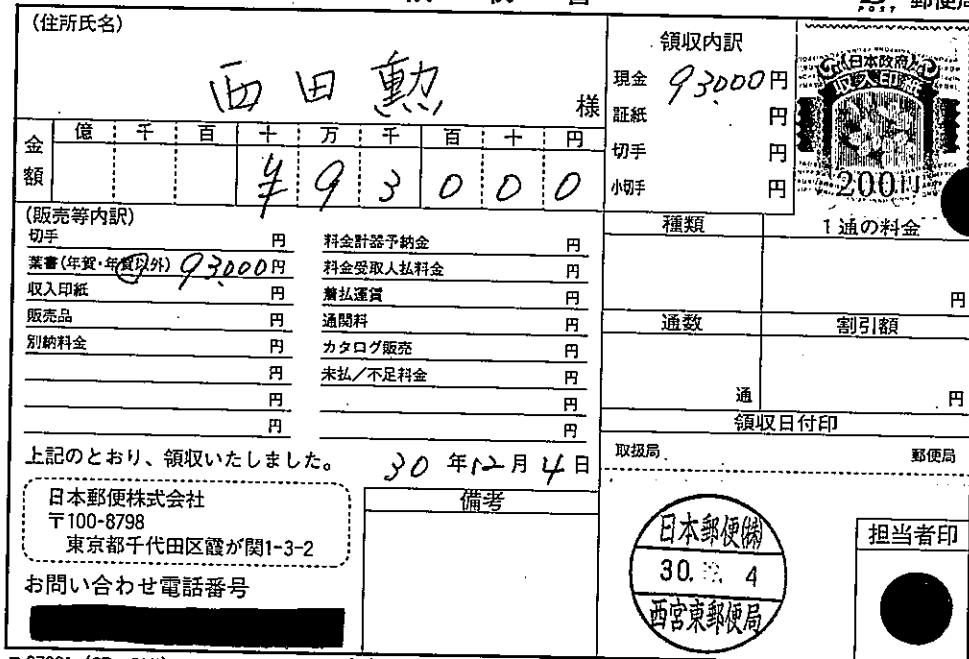 郵便局
(住所氏名)
西田勲 様
金額 億 千 百 十 万 千 百 十 円
¥ 9 3 0 0 0
領収内訳
現金 93,000円
証紙 円
切手 円
小切手 円
日本政府
収入印紙
200円
(販売等内訳)
切手 円
葉書(年賀・年賀以外) 93,000円
収入印紙 円
販売品 円
別納料金 円
円
円
円
料金計器予納金 円
料金受取人払料金 円
着払運賃 円
通関料 円
カタログ販売 円
未払/不足料金 円
円
円
種類 1通の料金
円
通数 割引額
通 円
領収日付印
取扱局 郵便局
上記のとおり、領収いたしました。 30年12月4日
日本郵便株式会社
〒100-8798
東京都千代田区霞が関1-3-2
お問い合わせ電話番号
備考
日本郵便㈱
30. 4
西宮東郵便局
担当者印